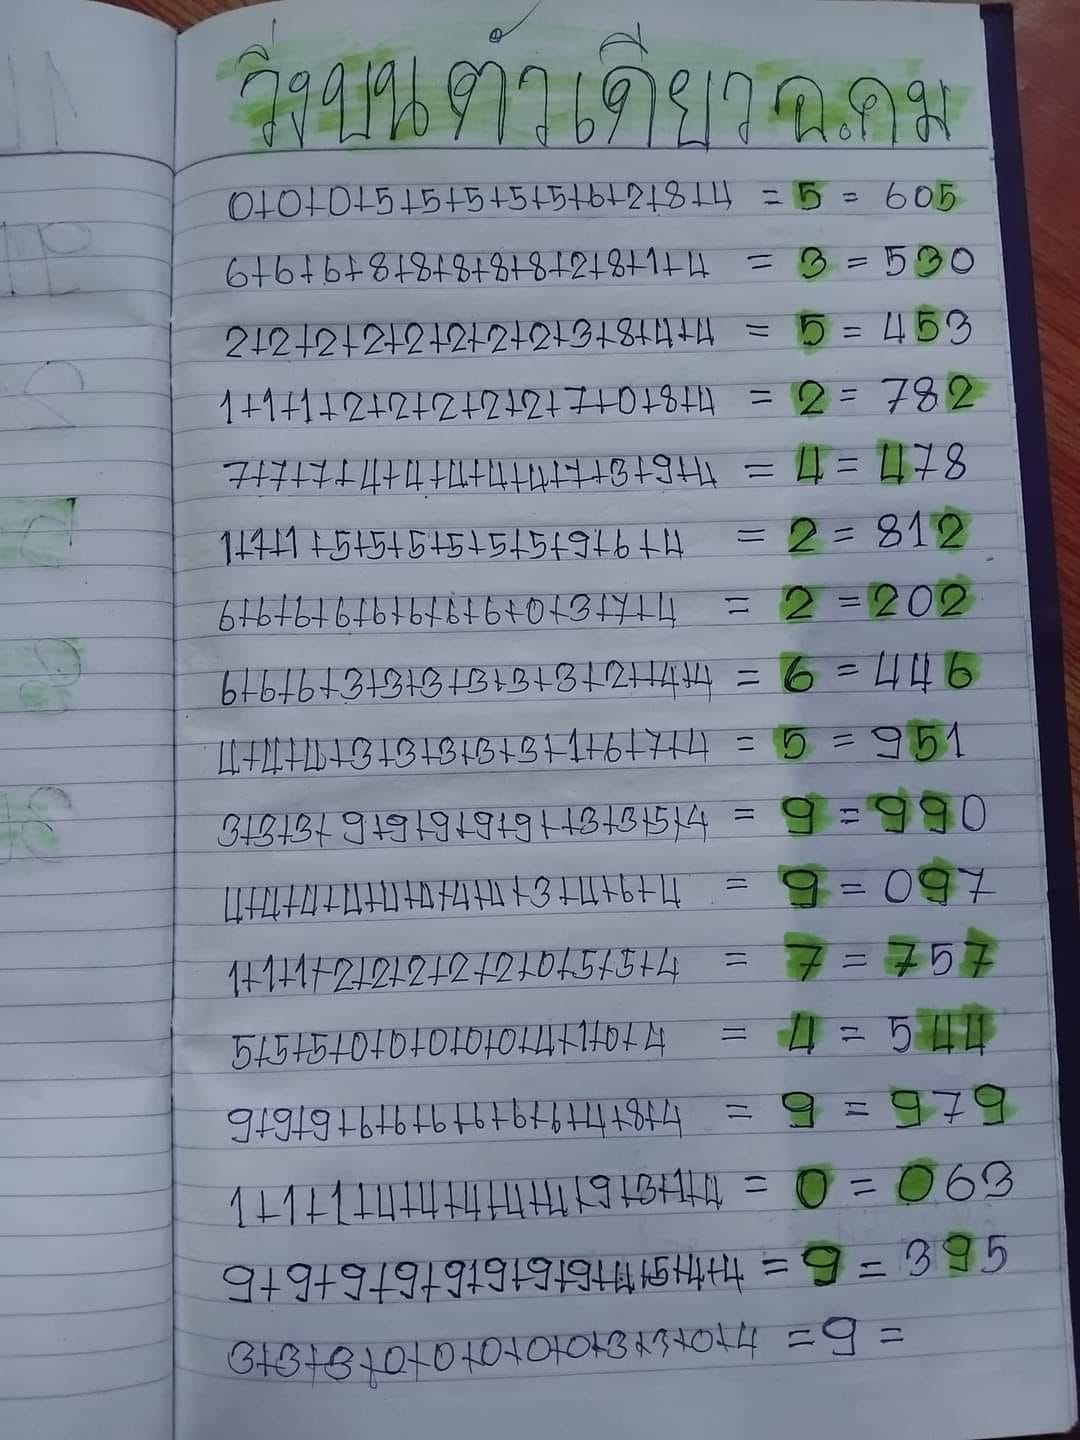 วิ่งบนตัวเดียว อ.คม
0+0+0+5+5+5+5+5+6+2+8+4 = 5 = 605
6+6+6+8+8+8+8+8+2+8+1+4 = 3 = 530
2+2+2+2+2+2+2+2+3+8+4+4 = 5 = 453
1+1+1+2+2+2+2+2+7+0+8+4 = 2 = 782
7+7+7+4+4+4+4+4+7+3+9+4 = 4 = 478
1+1+1+5+5+5+5+5+5+9+6+4 = 2 = 812
6+6+6+6+6+6+6+6+0+3+7+4 = 2 = 202
6+6+6+3+3+3+3+3+3+2+4+4 = 6 = 446
4+4+4+3+3+3+3+3+1+6+7+4 = 5 = 951
3+3+3+9+9+9+9+9+3+3+5+4 = 9 = 990
4+4+4+4+4+4+4+4+3+4+6+4 = 9 = 097
1+1+1+2+2+2+2+2+0+5+5+4 = 7 = 757
5+5+5+0+0+0+0+0+4+1+0+4 = 4 = 544
9+9+9+6+6+6+6+6+6+4+8+4 = 9 = 979
1+1+1+4+4+4+4+4+9+3+1+4 = 0 = 063
9+9+9+9+9+9+9+9+4+5+4+4 = 9 = 395
3+3+3+0+0+0+0+0+3+3+0+4 = 9 =